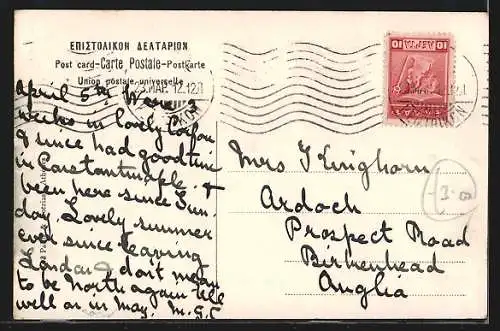 ΕΠΙΣΤΟΛΙΚΟΝ ΔΕΛΤΑΡΙΟΝ
Post card-Carte Postale-Postcarte
Union postale universelle
23 ΜΑΡ. 12.12
ΛΕΠΤΑ
10 10
ΕΛΛΑΣ
April 5th Were 3
weeks in lovely Corfou
& since had good time
in Constantinople. &
been here since Sun.
day. Lovely summer
ever since leaving
London & don't mean
to be North again till
well on in May. M.G.C
Mrs J Kinghorn
Ardoch
Prospect Road
Birkenhead
Anglia